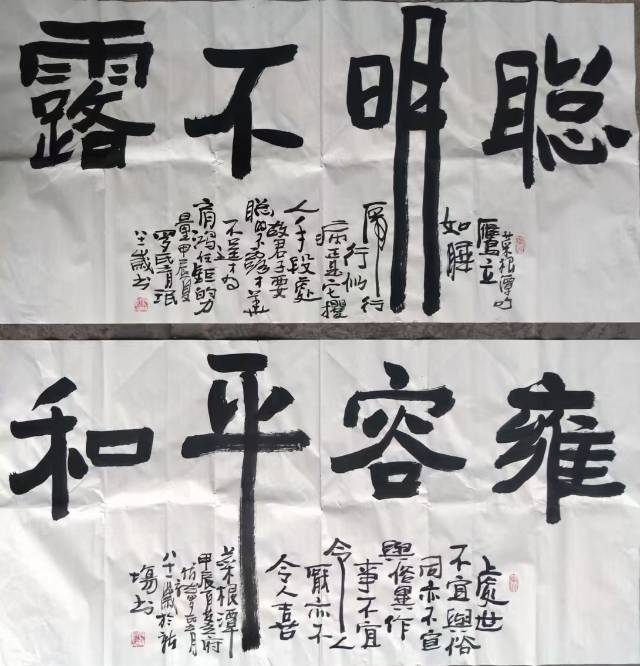 聪明不露
菜根谭
鹰立
如睡
虎行似
病正是它攫
人手段处
故君子要
聪明不露才华
不逞才有
肩鸿任钜的力
量甲辰夏
八十二岁书
雍容平和
处世
不宜与俗
同亦不宜
与俗异作
事不宜
令人
厌亦不
令人喜
菜根谭
甲辰